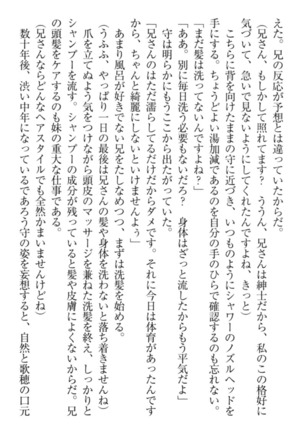 えた。兄の反応が予想とは違っていたからだ。
（兄さん、もしかして照れてます？　ううん、兄さんは紳士だから、私のこの格好に
気づいて、急いで見ないようにしてくれたんですよね、きっと）
こちらに背を向けたままの守に近づき、いつものようにシャワーのノズルヘッドを
手にする。ちょうどよい湯加減であるのを自分の手のひらで確認するのも忘れない。
「まだ髪は洗ってないんですよね？」
「ああ。別に毎日洗う必要もないだろ？　身体はざっと流したからもう平気だよ」
守は明らかにもうここから出たがっていた。
「兄さんのはただ濡らしてるだけだからダメです。それに今日は体育があったんです
から、ちゃんと綺麗にしないといけませんよぅ」
あまり風呂が好きでない兄をたしなめつつ、まずは洗髪を始める。
（うふふ、やっぱり一日の最後は兄さんの髪や身体を洗わないと落ち着きませんね）
爪を立てぬよう気をつけながら頭皮のマッサージを兼ねた洗髪を終え、しっかりと
シャンプーを流す。シャンプーの成分が残っていると髪や皮膚によくないからだ。兄
の頭髪をケアするのも妹の重大な仕事である。
（兄さんならどんなヘアスタイルでも全然かまいませんけどね）
数十年後、渋い中年になっているであろう守の姿を妄想すると、自然と歌穂の口元